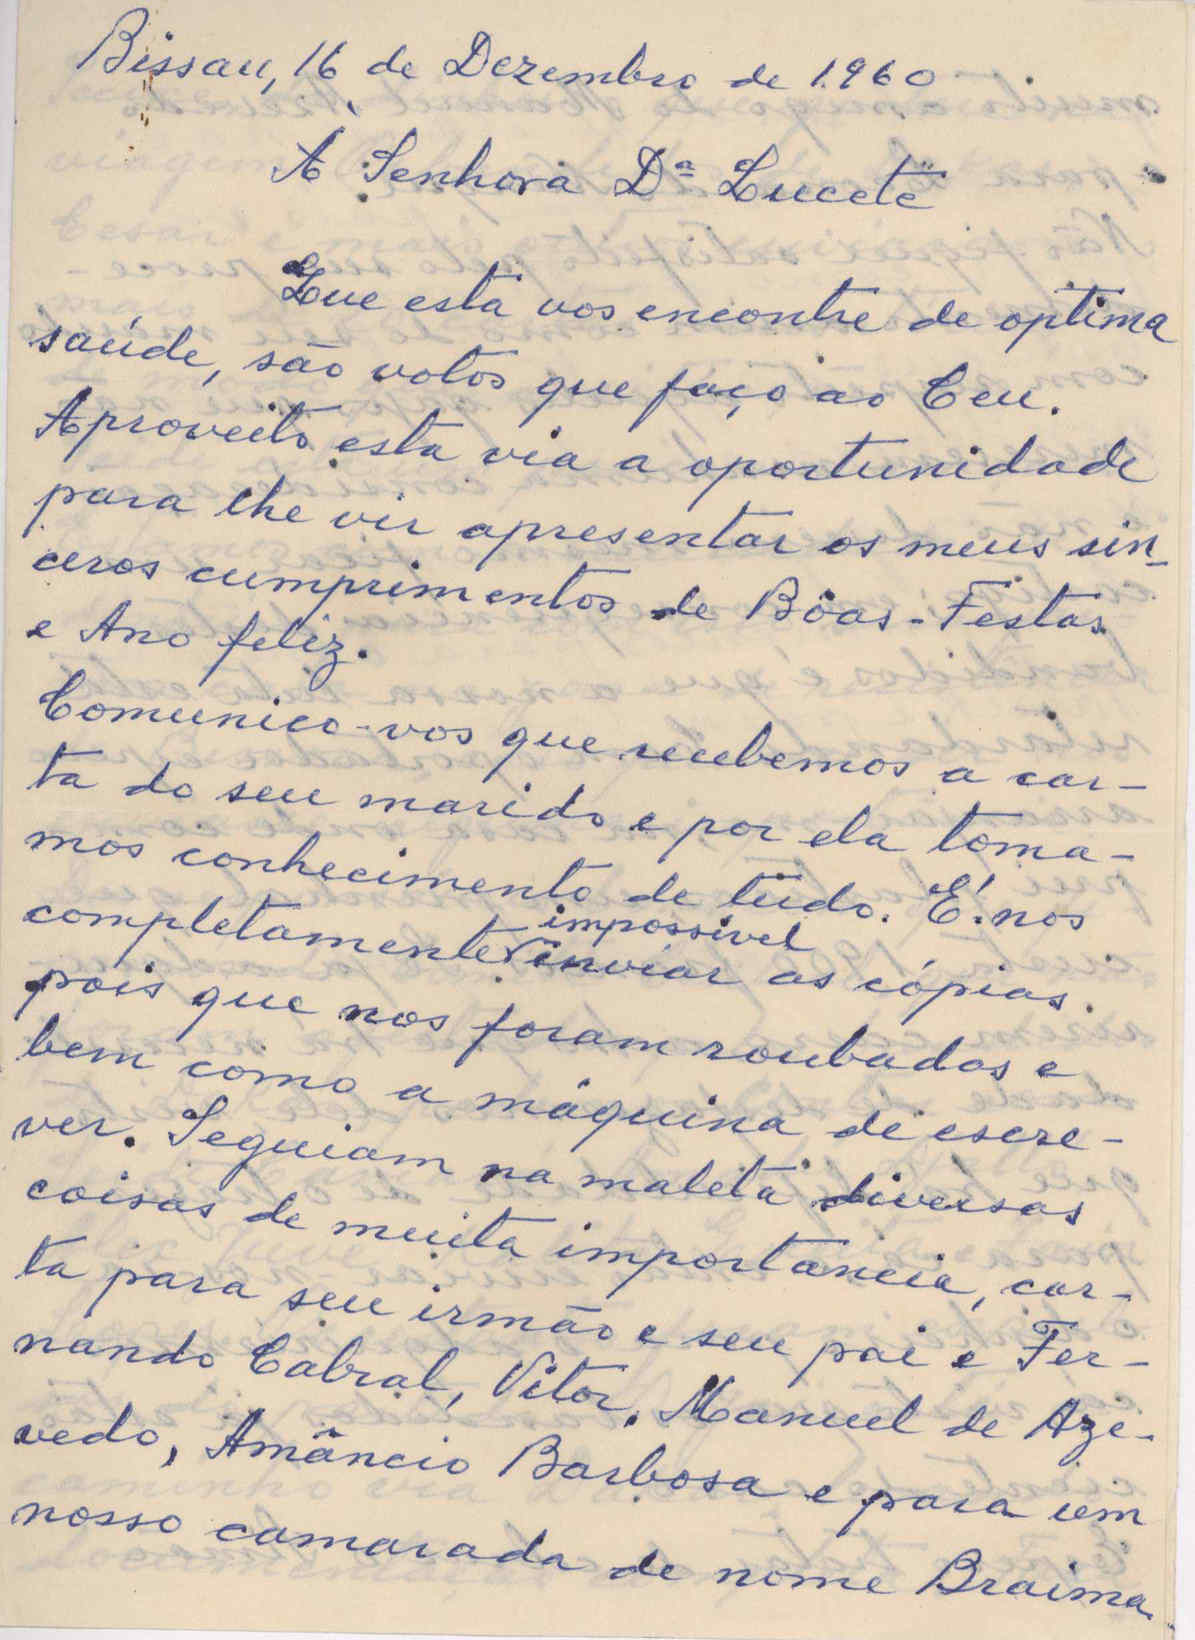 Bissau, 16 de Dezembro de 1.960
À Senhora Dª Lucete
Que esta vos encontre de optima
saúde, são votos que faço ao Ceu.
Aproveito esta via a oportunidade
para lhe vir apresentar os meus sin-
ceros cumprimentos de Bôas-Festas
e Ano feliz.
Comunico-vos que recebemos a car-
ta do seu marido e por ela toma-
mos conhecimento de tudo. É-nos
completamente impossivel inviar as cópias.
pois que nos foram roubadas e
bem como a máquina de escre-
ver. Seguiam na maleta diversas
coisas de muita importancia, car-
ta para seu irmão e seu pai e Fer-
nando Cabral, Vitor, Manuel de Aze-
vedo, Amâncio Barbosa e para um
nosso camarada de nome Braima